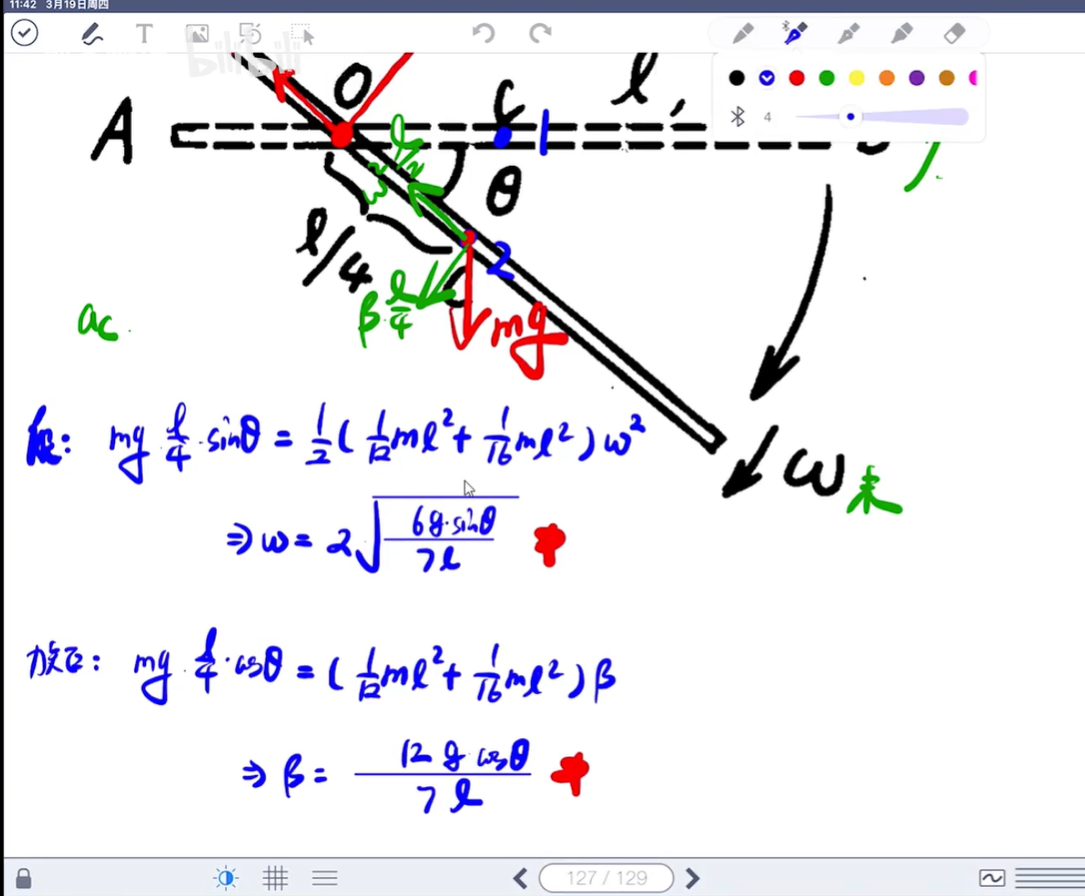 11:42 3月19日周四
T
bilibili
4
A
O
C
l,
θ
ω² l/4
l/4
2
β l/4
mg
a_c
ω末
: mg l/4 · sinθ = 1/2 ( 1/12 ml² + 1/16 ml² ) ω²
⇒ ω = 2 √(6g·sinθ / 7l)
: mg · l/4 · cosθ = ( 1/12 ml² + 1/16 ml² ) β
⇒ β = 12 g cosθ / 7 l
127 / 129